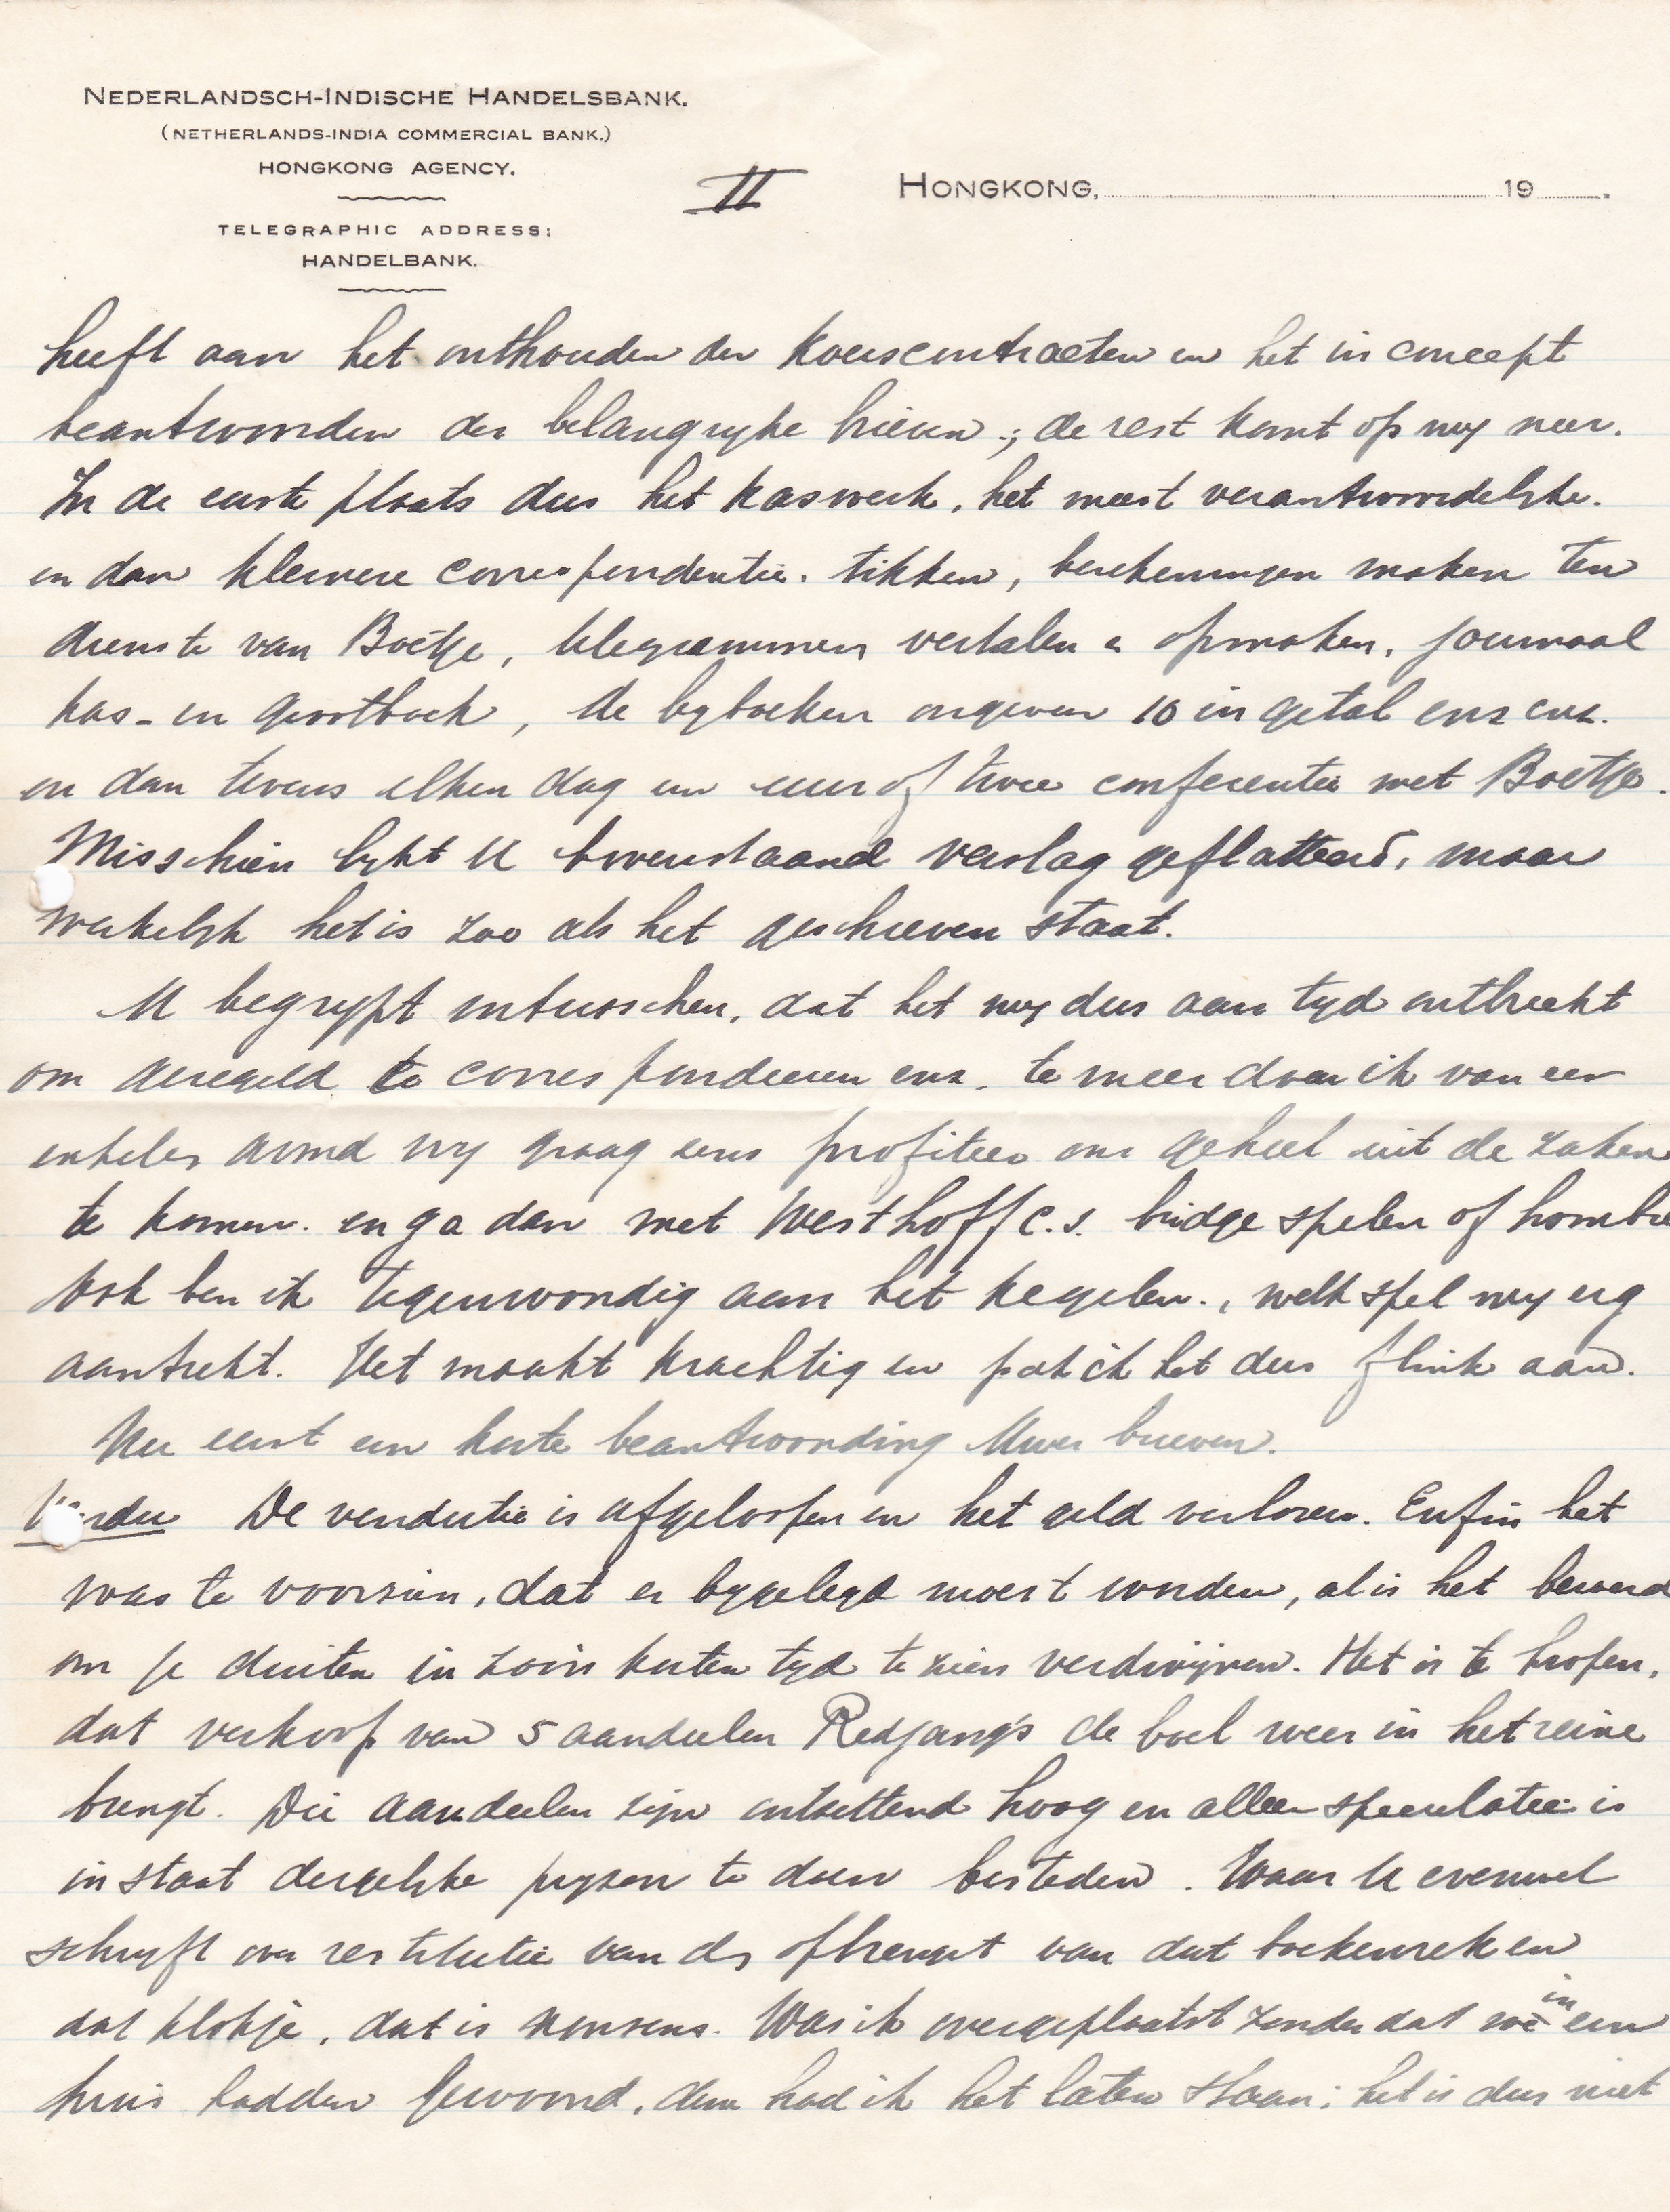 NEDERLANDSCH-INDISCHE HANDELSBANK.
(NETHERLANDS-INDIA COMMERCIAL BANK.)
HONGKONG AGENCY.
TELEGRAPHIC ADDRESS:
HANDELBANK.
II
HONGKONG, 19 .
heeft aan het onthouden der koerscontracten en het in concept
beantwoorden der belangryke brieven; de rest komt op my neer.
In de eerste plaats dus het kaswerk, het meest verantwoordelyke.
en dan kleinere correspondentie. tikken, berekeningen maken ten
dienste van Boetje, telegrammen vertalen & opmaken, journaal
kas- en grootboek, de byboeken ongeveer 10 in getal enz enz.
en dan tevens elken dag een uur of twee conferentie met Boetje.
Misschien lykt U bovenstaand verslag geflatteerd, maar
werkelyk het is zoo als het geschreven staat.
U begrypt intusschen, dat het my dus aan tyd ontbreekt
om geregeld te correspondeeren enz. te meer daar ik van een
enkelen avond vry graag eens profiteer om geheel uit de zaken
te komen. en ga dan met Westhoff c.s. bridge spelen of hombre
Ook ben ik tegenwoordig aan het kegelen., welk spel my erg
aantrekt. Het maakt krachtig en pak ik het dus flink aan.
Nu eerst een korte beantwoording Uwer brieven.
De vendutie is afgeloopen en het geld verloren. Enfin het
was te voorzien, dat er bygelegd moest worden, al is het beroerd
om je duiten in zoo'n korten tyd te zien verdwijnen. Het is te hopen,
dat verkoop van 5 aandeelen Redjang's de boel weer in het reine
brengt. Die aandeelen zijn ontzettend hoog en alleen speculatie is
in staat dergelyke pryzen te doen besteden. Waar U evenwel
schryft over restitutie van de opbrengst van dat boekenrek en
dat klokje, dat is nonsens. Was ik overgeplaatst zonder dat we in een
huis hadden gewoond, dan had ik het laten staan; het is dus niet